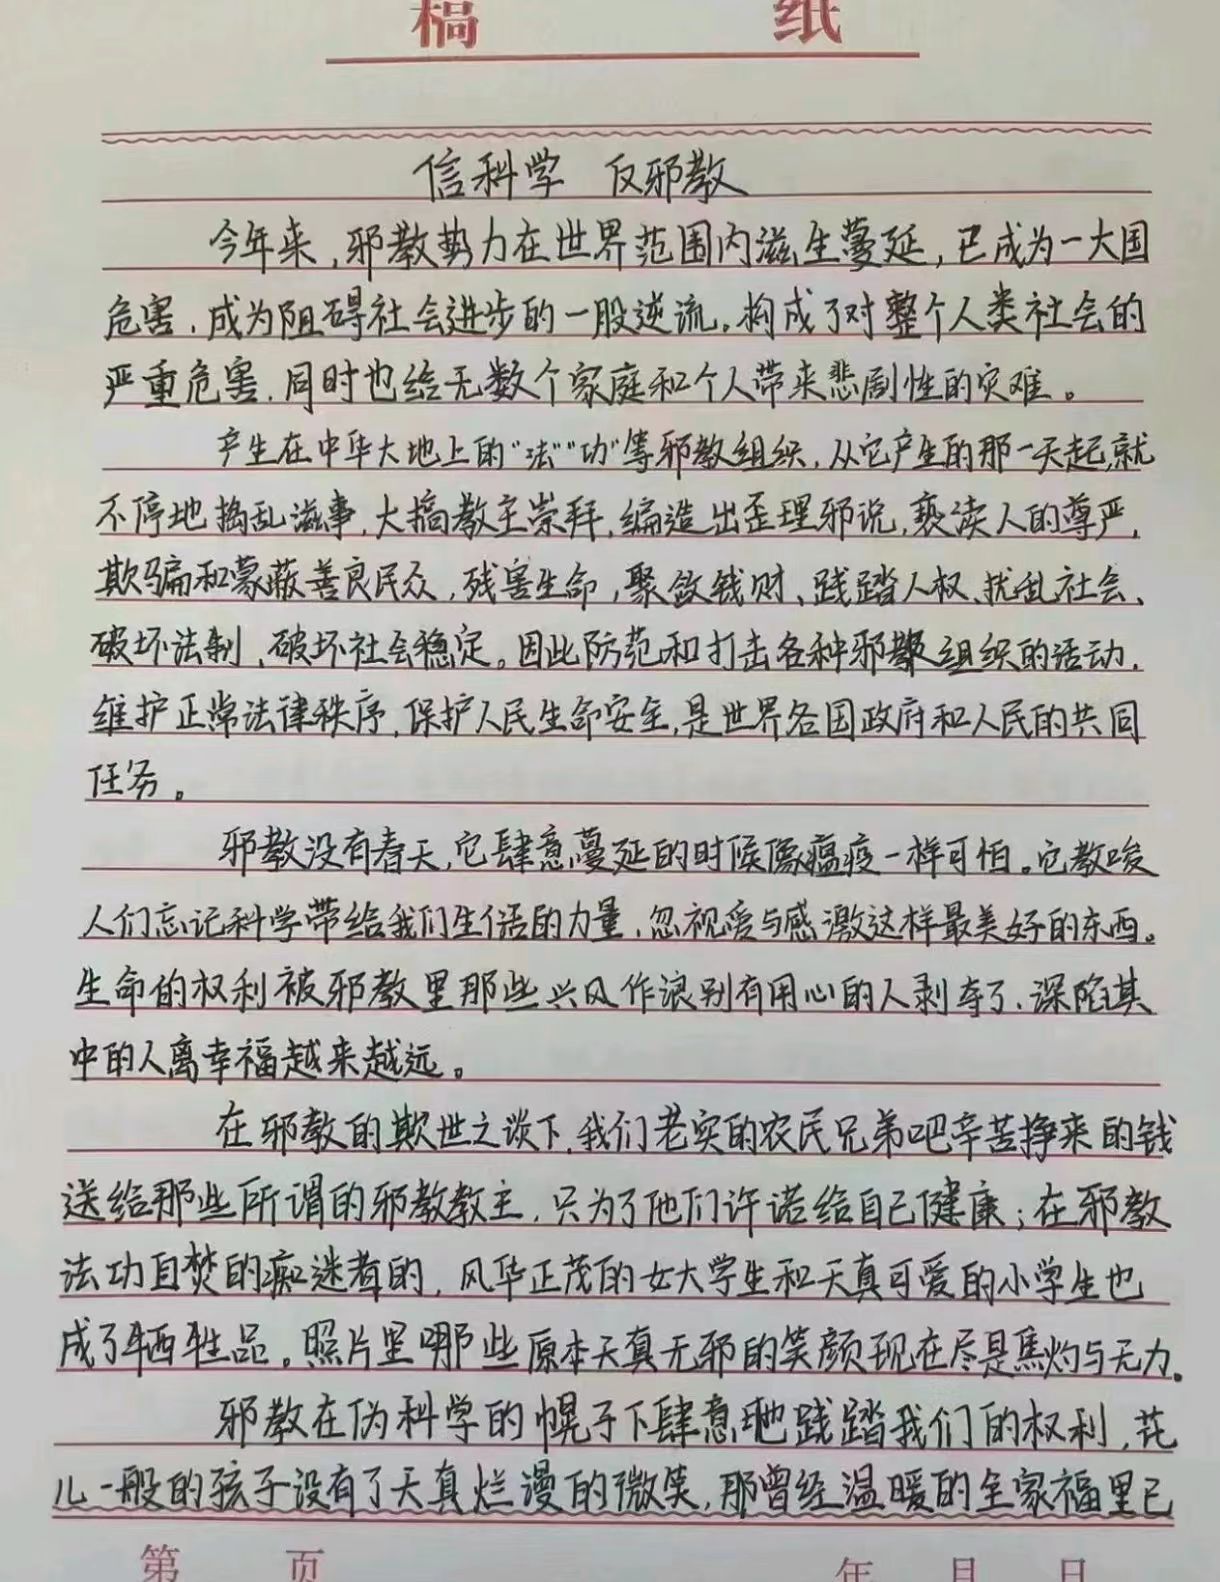 稿 纸
信科学 反邪教
今年来,邪教势力在世界范围内滋生蔓延,已成为一大国
危害,成为阻碍社会进步的一股逆流。构成了对整个人类社会的
严重危害,同时也给无数个家庭和个人带来悲剧性的灾难。
产生在中华大地上的“法”“功”等邪教组织,从它产生的那一天起,就
不停地捣乱滋事,大搞教主崇拜,编造出歪理邪说,亵渎人的尊严,
欺骗和蒙蔽善良民众,残害生命,聚敛钱财、践踏人权、扰乱社会、
破坏法制,破坏社会稳定。因此防范和打击各种邪教组织的活动,
维护正常法律秩序,保护人民生命安全,是世界各国政府和人民的共同
任务。
邪教没有春天,它肆意蔓延的时候像瘟疫一样可怕。它教唆
人们忘记科学带给我们生活的力量,忽视爱与感激这样最美好的东西。
生命的权利被邪教里那些兴风作浪别有用心的人剥夺了,深陷其
中的人离幸福越来越远。
在邪教的欺世之谈下,我们老实的农民兄弟吧辛苦挣来的钱
送给那些所谓的邪教教主,只为了他们许诺给自己健康;在邪教
法功自焚的痴迷者的,风华正茂的女大学生和天真可爱的小学生也
成了牺牲品。照片里哪些原本天真无邪的笑颜现在尽是焦灼与无力。
邪教在伪科学的幌子下肆意地践踏我们的权利,花
儿一般的孩子没有了天真烂漫的微笑,那曾经温暖的全家福里已
第 页 年 月 日